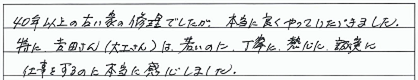 40年以上の古い家の修理でしたが、本当に良くやっていただきました。
特に、吉田さん(大工さん)は、若いのに、丁寧に、熱心に、誠実に
仕事をするのに本当に感心しました。